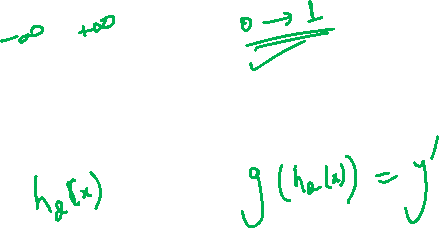 -∞ +∞ 0 → 1
hθ(x) g(hθ(x)) = y'